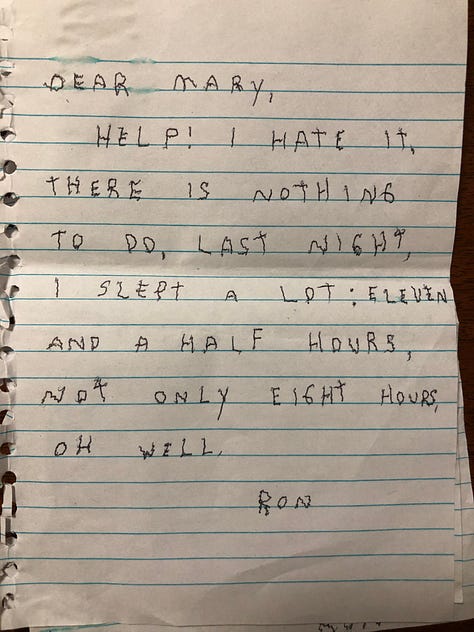 DEAR MARY,
HELP! I HATE IT.
THERE IS NOTHING
TO DO. LAST NIGHT,
I SLEPT A LOT: ELEVEN
AND A HALF HOURS,
NOT ONLY EIGHT HOURS.
OH WELL.
RON